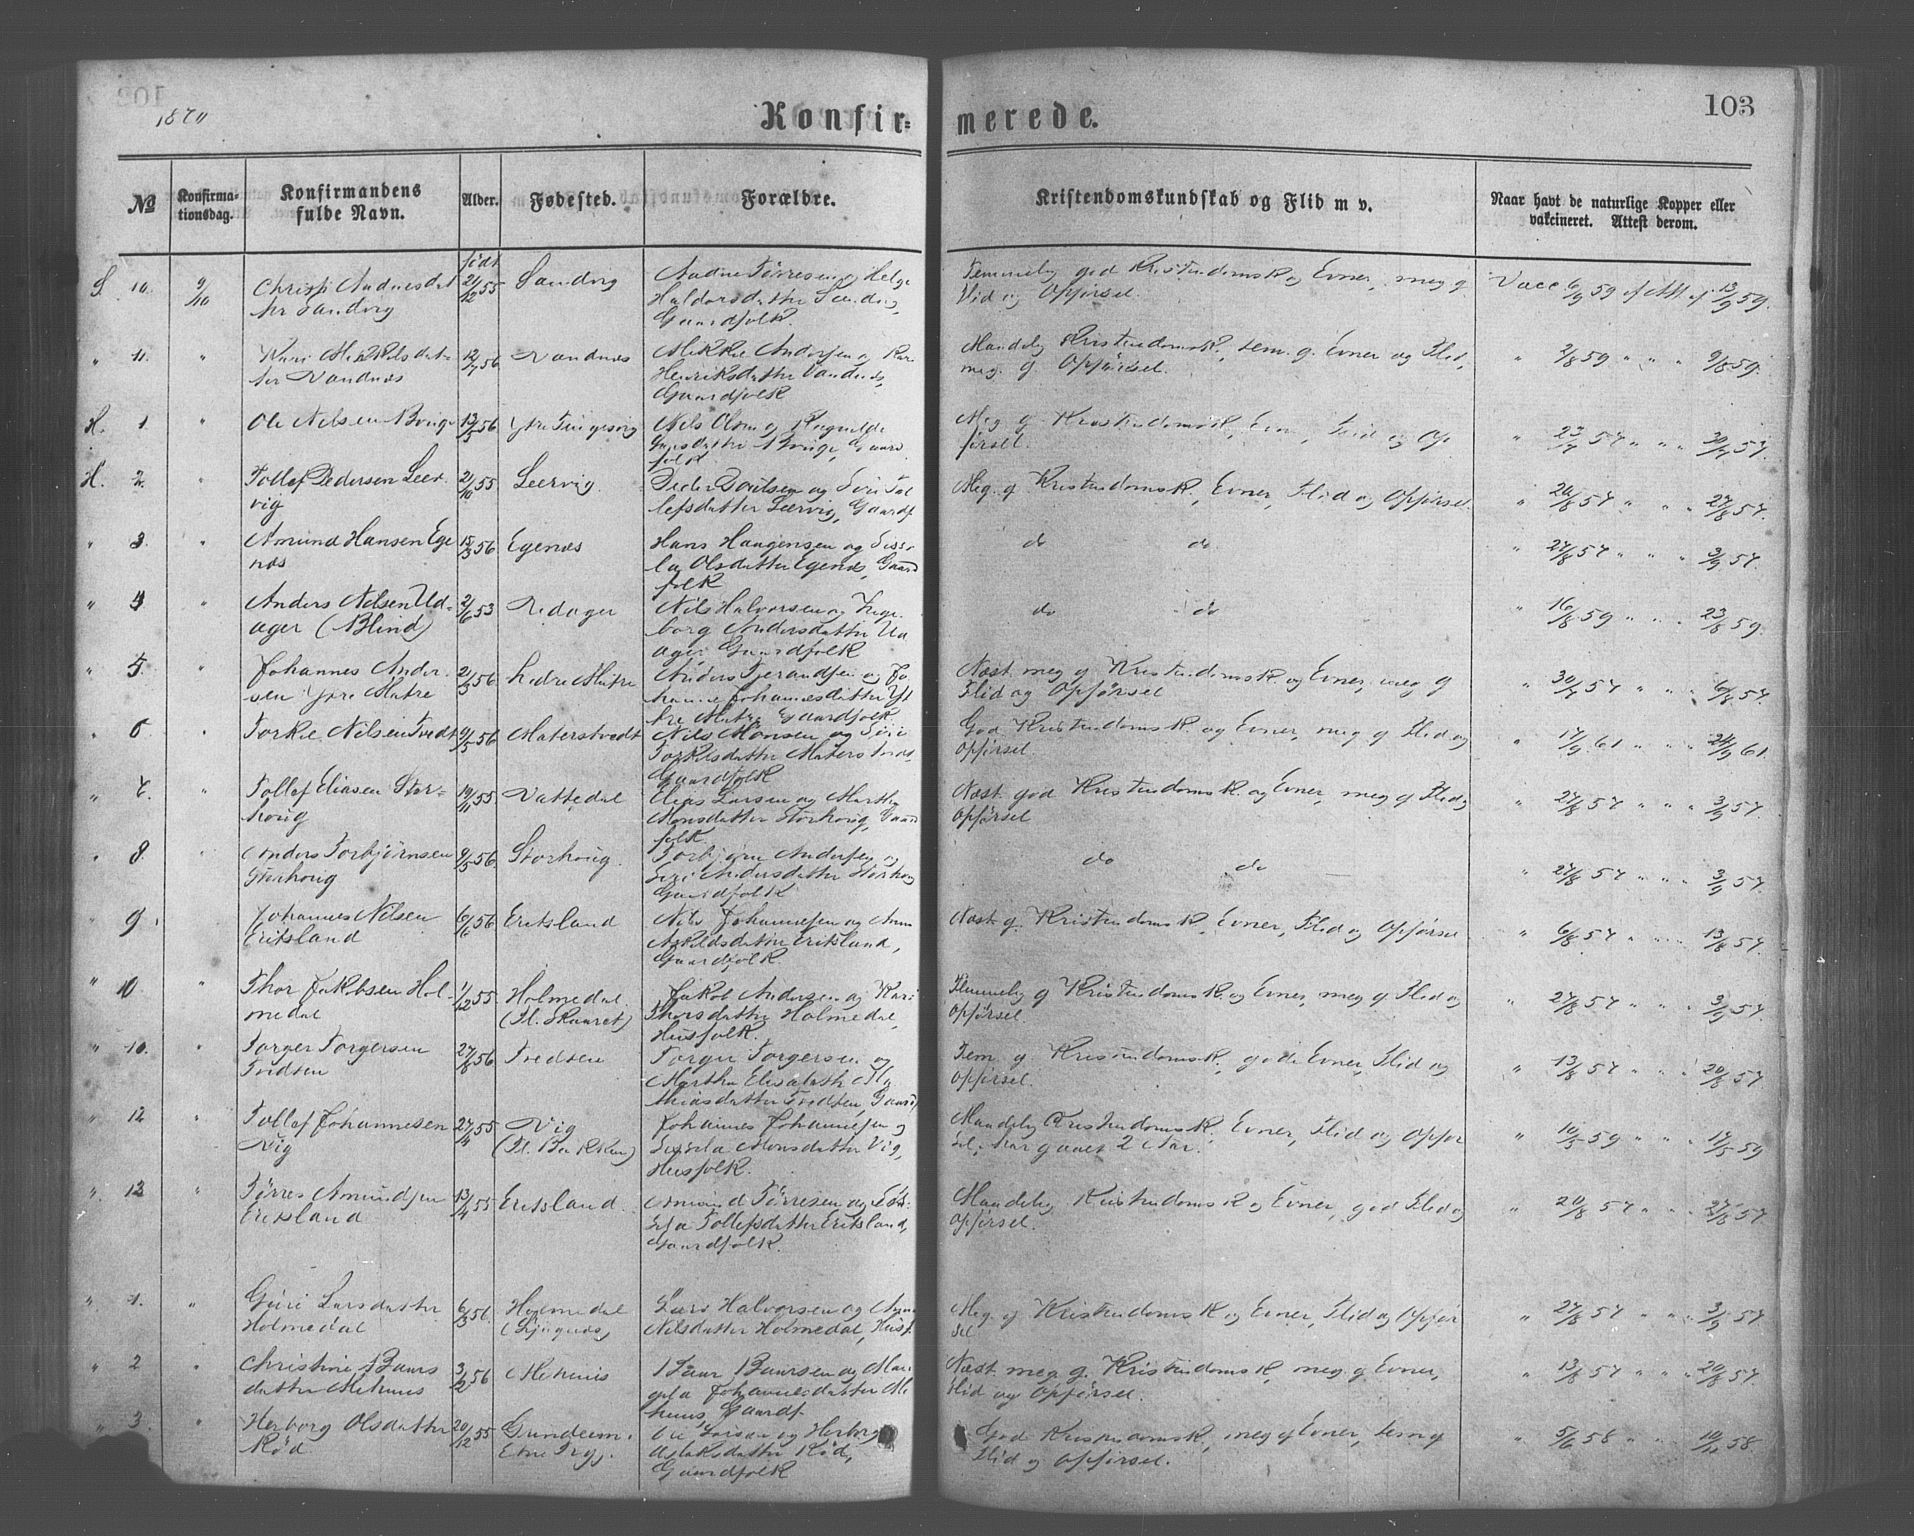 1870
Konfir=
merede.
103
No
Konfirma-
tionsdag.
Konfirmandens
fulde Navn.
Alder.
Fødested.
Forældre.
Kristendomskundskab og Flid m v.
Naar havt de naturlige Kopper eller
vakcineret. Attest derom.
født
S. 10. 9/10 Christi Andnesdat
ter Sandvig
21/12 55
Sandvig
Andne Tørresen og Helge
Haldorsdatter Sandvig,
Gaardfolk.
Temmelig god Kristendomsk. og Evner, meg. g
Flid og Opførsel.
Vacc. 6/9 59 Att. af 13/9 59.
" 11. " Kari Mikkelsdat-
ter Vandnes
12/7 56
Vandnes
Mikkel Andersen og Kari
Henriksdatter Vandnes,
Gaardfolk
Mandelig Kristendomsk., tem. g. Evner og Flid,
meg. g Opførsel.
" 2/8 59 " " " 9/8 59.
H. 1 " Ole Nilsen
13/5 56
Ytre
Nils Olsen og Ragnilde
Gaard
folk
Meg. g Kristendomsk., Evn., Flid og Op
førsel.
" 23/7 57 " " " 30/7 57.
H. 2. Tollef Pedersen Leer-
vig
21/10 55
Leervig.
Peder og Siri Tol
lefsdatter Leervig, Gaardf
Meg. g. Kristendomsk., Evner, Flid og Opførsel.
" 20/8 57 " " " 27/8 57.
" 3. " Amund Hansen Ege
næs
15/3 56
Egenæs
Hans Haagensen og Sisse
la Olsdatter Egenæs, Gaard
folk
do do
" 27/8 57 " " " 3/9 57.
" 4 " Anders Nilsen Ud-
ager (Blind)
2/6 53
Udager
Nils Halvorsen og Inge
borg Andersdatter Ud
ager Gaardfolk
do do
" 16/8 59 " " " 23/8 59.
" 5. " Johannes Ander-
sen Ytre Matre
21/3 56
Indre Matre
Anders Tjerandsen og Jo
hanne Johannesdatter Yt
tre Matre Gaardfolk.
Næst. meg g Kristendomsk. og Evner, meg g
Flid og Opførsel
" 30/7 57 " " " 6/8 57.
" 6 " Torkel Nilsen Tvedt
9/5 56
Materstvedt
Nils Monsen og Siri
Torkelsdatter Materstvedt,
Gaardfolk
God Kristendomsk. og Evner, meg g Flid og
Opførsel.
" 17/9 61 " " " 24/9 61.
" 7. " Tollef Eliasen Stor-
houg
19/11 55
Vattedal
Elias Larsen og Martha
Monsdatter Storhoug, Gaard
folk
Næst. god Kristendomsk. og Evner, meg g Flid og
Opførsel
" 27/8 57 " " " 3/9 57.
" 8. " Anders Torbjørnsen
Storhoug
9/5 56.
Storhoug.
Torbjørn Andersen og
Siri Andersdatter Storhoug
Gaardfolk
do do
" 27/8 57 " " " 3/9 57.
" 9. " Johannes Nilsen
Eritsland
6/6 56
Eritsland
Nils Johannesen og Anna
Eritsland,
Gaardfolk.
Næst g. Kristendomsk., Evner, Flid og Opførsel
" 6/8 57 " " " 13/8 57.
" 10 " Thor Jakobsen Hol-
medal
1/12 55
Holmedal
(Pl. Skaaret)
Jakob Andersen og Kari
Thorsdatter Holmedal,
Husfolk.
Temmelig g Kristendomsk. og Evner, meg g Flid og
Opførsel.
" 27/8 57 " " 3/9 57.
" 10. " Torger Torgersen
Tvedten
27/8 56
Tvedten
Torger Torgersen og
Martha Elisabeth Ma
thiasdatter Tvedten, Gaardf
Tem g. Kristendomsk., gode Evner, Flid og
Opførsel.
" 13/8 57 " " 20/8 57.
" 12 " Tollef Johannesen
Vig
27/4 55
Vig
(Pl. Bakken)
Johannes Johannesen og
Sissela Monsdatter Vig,
Husfolk.
Mandelig Kristendomsk., Evner, Flid og Opfør
sel, har gaaet 2 Aar.
" 10/5 59 " " 17/5 59
" 13 " Tørres Amundsen
Eritsland
13/4 55
Eritsland.
Amund Tørresen og
Tollefsdatter Eritsland,
Gaardfolk.
Mandelig Kristendomsk. og Evner, god Flid og
Opførsel.
" 20/8 57 " " 27/8 57
" 1. " Guri Larsdatter
Holmedal
6/3 56
Holmedal
Lars Halvorsen og Anna
Nilsdatter Holmedal, Husf.
Meg. g Kristendomsk. og Evner, Flid og Opfør
sel.
" 27/8 57 " " " 3/9 57.
" 2 " Christine Baars
datter Mehuus
3/2 56
Mehuus
Baar Baarsen og Mar
Johannesdatter Me
huus, Gaardf.
Næst. meg. g. Kristendomsk., meg. g Evner,
Flid og Opførsel.
" 13/8 57 " " " 20/8 57
" 3. " Herborg Olsdatter
Rød
20/12 55
Ole Larsen og Herborg
Aslaksdatter Rød,
Gaardfolk
God Kristendomsk., meg g Evner, tem g
Flid og Opførsel.
" 5/6 58 " " 58.